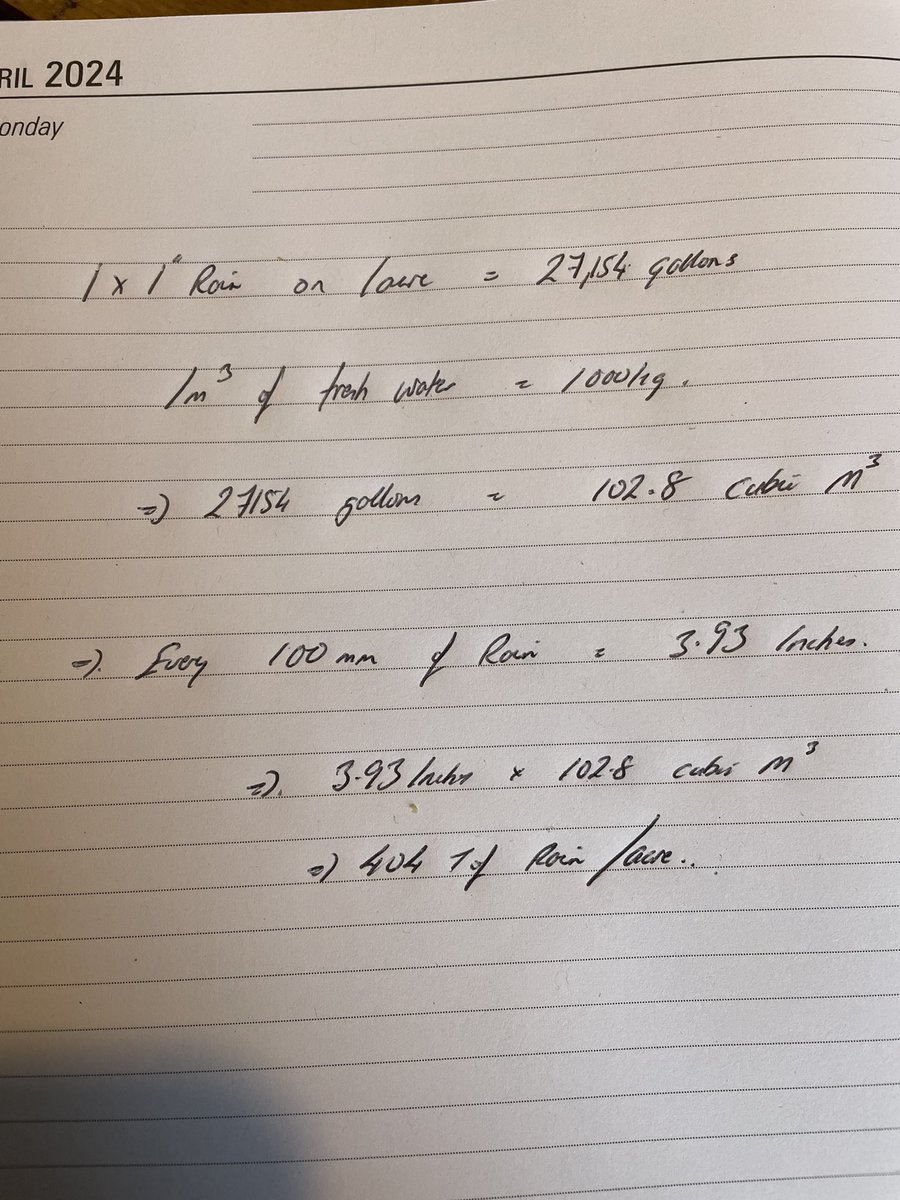 RIL 2024
onday
1 x 1" Rain on 1 acre = 27,154 gallons
1m³ of fresh water = 1000kg.
=) 27154 gallons = 102.8 cubic m³
=). Every 100 mm of Rain = 3.93 Inches.
=). 3.93 Inches x 102.8 cubic m³
=) 404 T of Rain /acre..